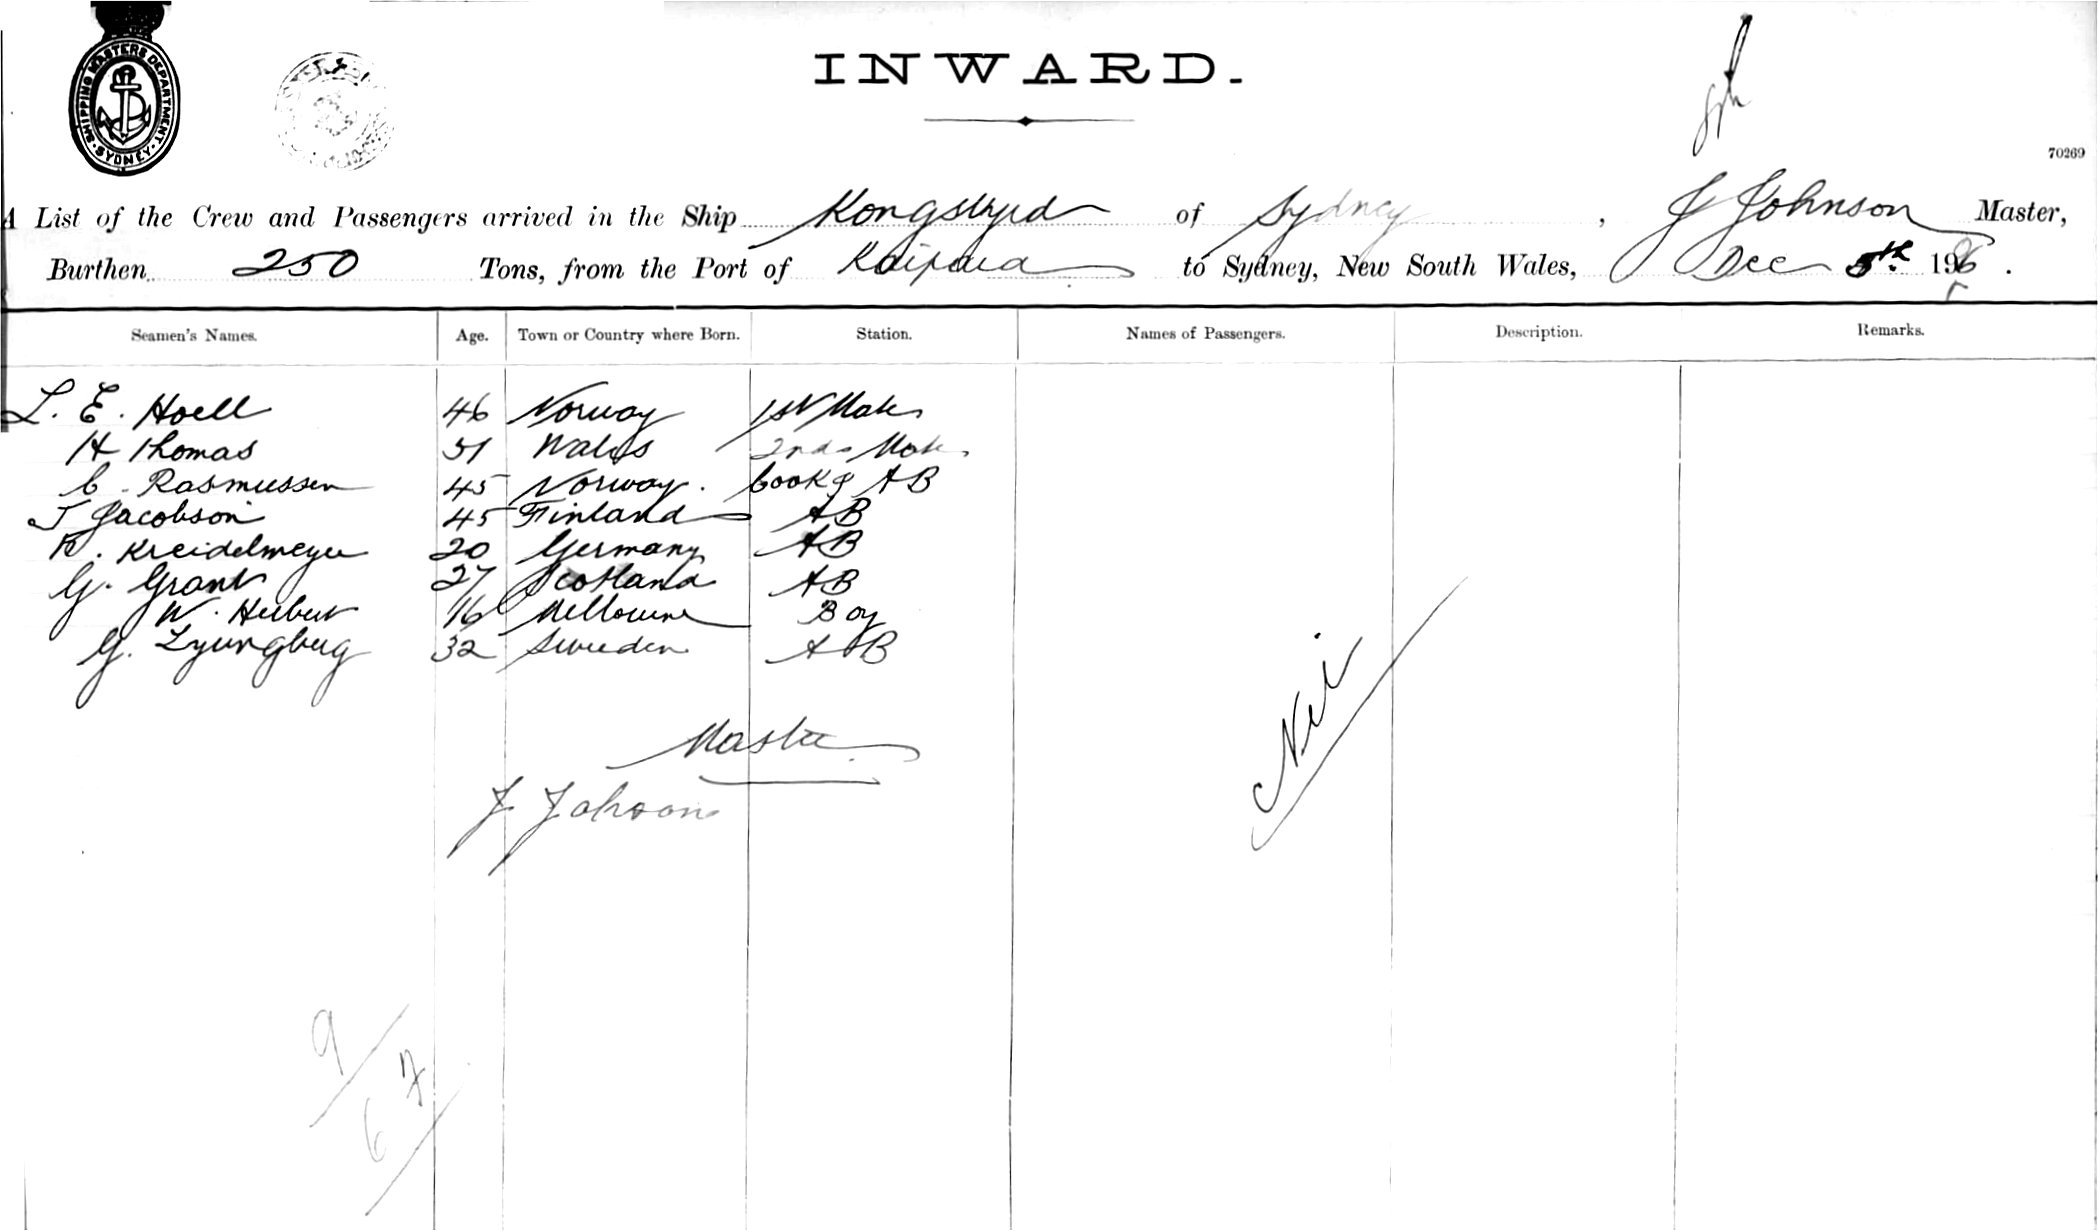 SHIPPING MASTERS DEPARTMENT
SYDNEY
INWARD.
70269
A List of the Crew and Passengers arrived in the Ship Kongsbyrd of Sydney, J Johnson Master,
Burthen 250 Tons, from the Port of Kaipara to Sydney, New South Wales, Dec 5th 190
Seamen's Names. Age. Town or Country where Born. Station. Names of Passengers. Description. Remarks.
L. E. Hoell 46 Norway 1st Mate
H Thomas 51 Wales 2nd Mate
C. Rasmussen 45 Norway. Cook & AB
J Jacobson 45 Finland AB
K. Kreidelmeyer 20 Germany AB
G. Grant 27 Scotland AB
W. Herbert 16 Melbourne Boy
G. Lyungberg 32 Sweden AB
Nil
Master
J Johnson
9
67